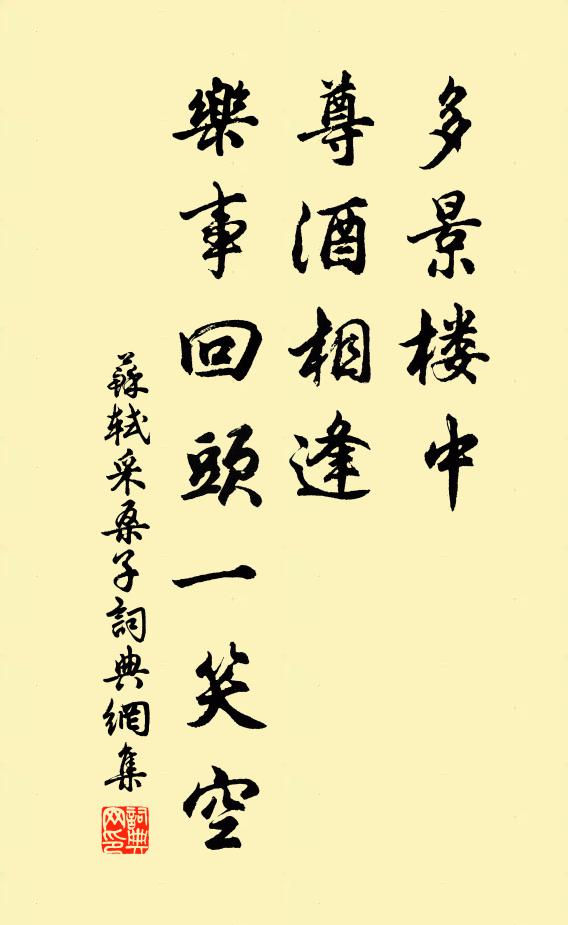 多景楼中
尊酒相逢
樂事回頭一笑空
蘇軾采桑子詞典網集
詞典
网印